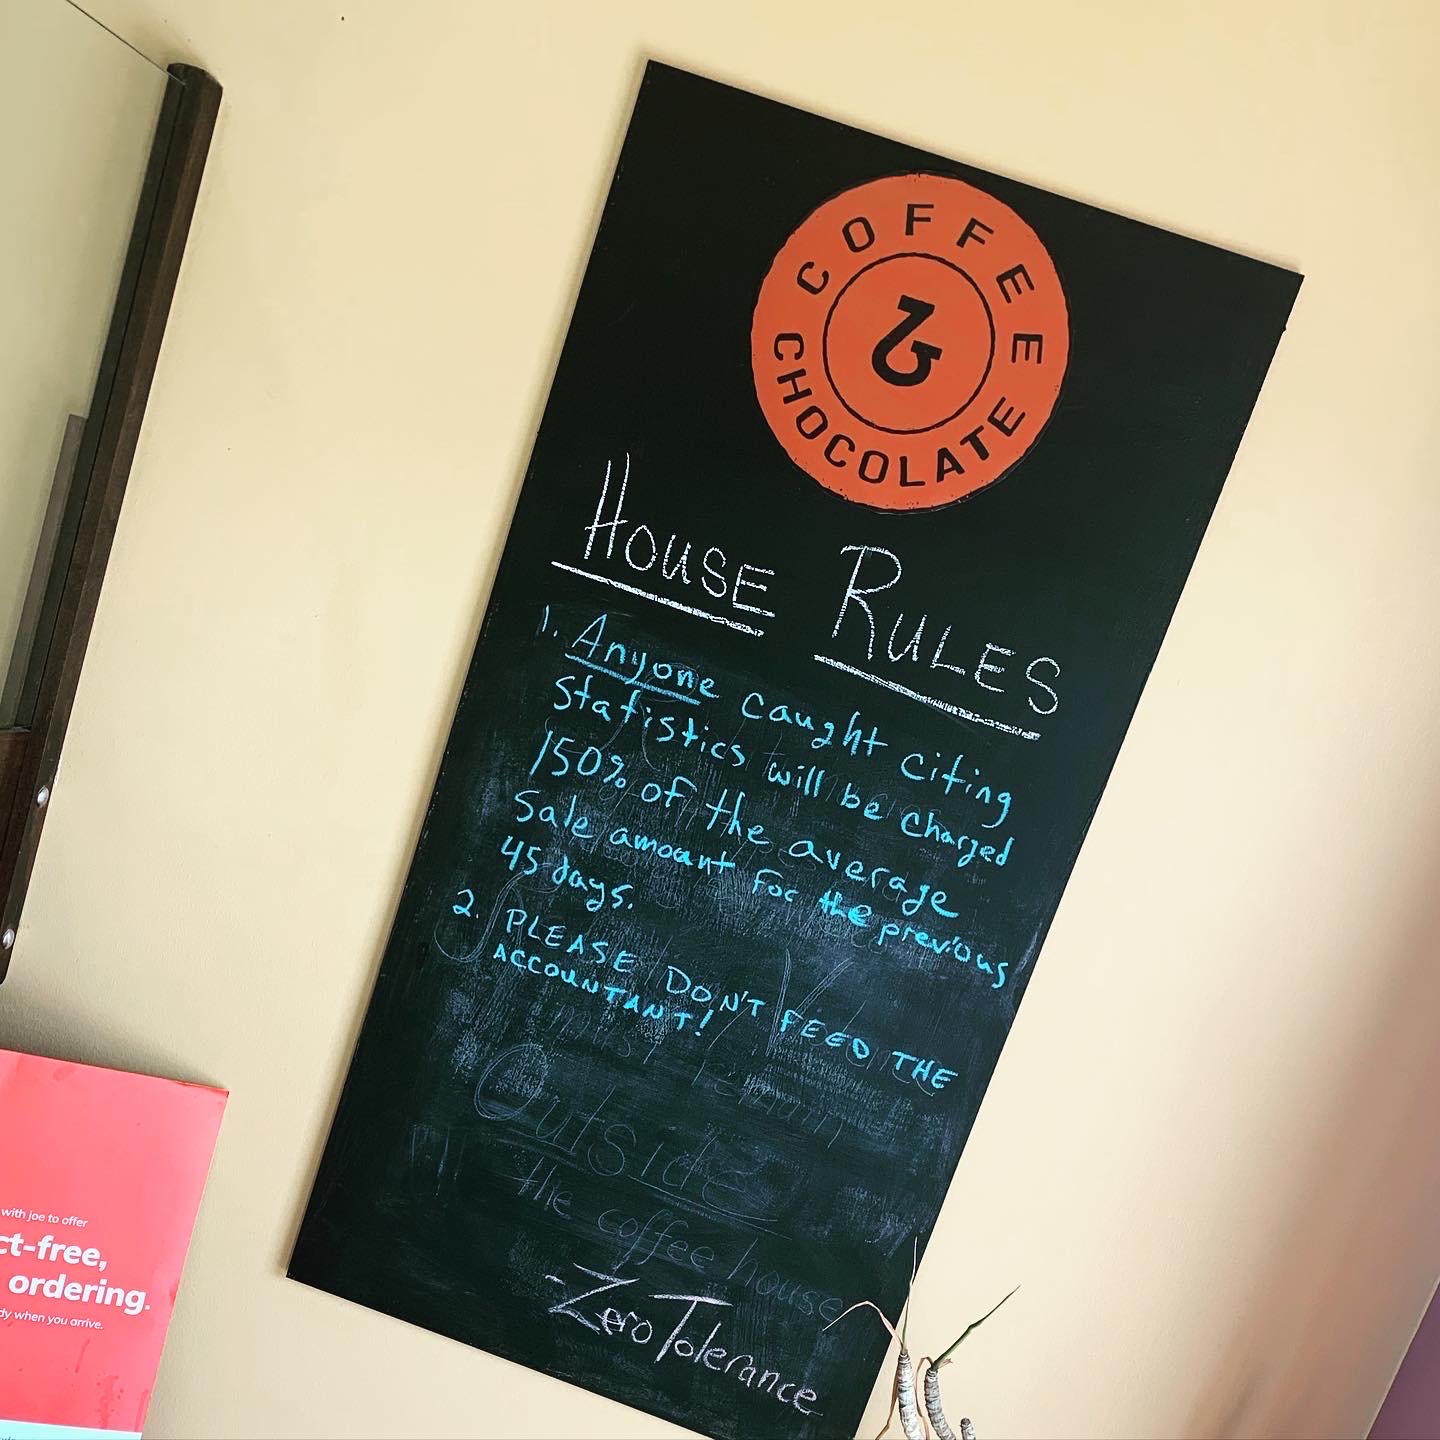 COFFEE
CHOCOLATE
HOUSE RULES
1. Anyone caught citing
statistics will be charged
150% of the average
sale amount for the previous
45 days.
2. PLEASE DON'T FEED THE
ACCOUNTANT!
must remain
Outside
the coffee house
Zero Tolerance
with joe to offer
ct-free,
ordering.
dy when you arrive.